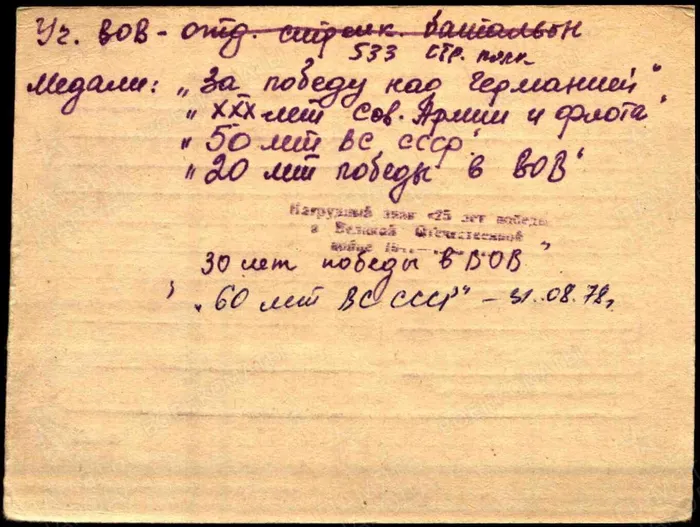 Уч. ВОВ - отд. стрелк. батальон
533 стр. полк
Медали: „За победу над Германией"
„XXX лет Сов. Армии и флота"
„50 лет ВС СССР"
„20 лет победы в ВОВ"
Нагрудный знак «25 лет победы
в Великой Отечественной
войне
30 лет победы в ВОВ"
„60 лет ВС СССР" - 31.08.78г.